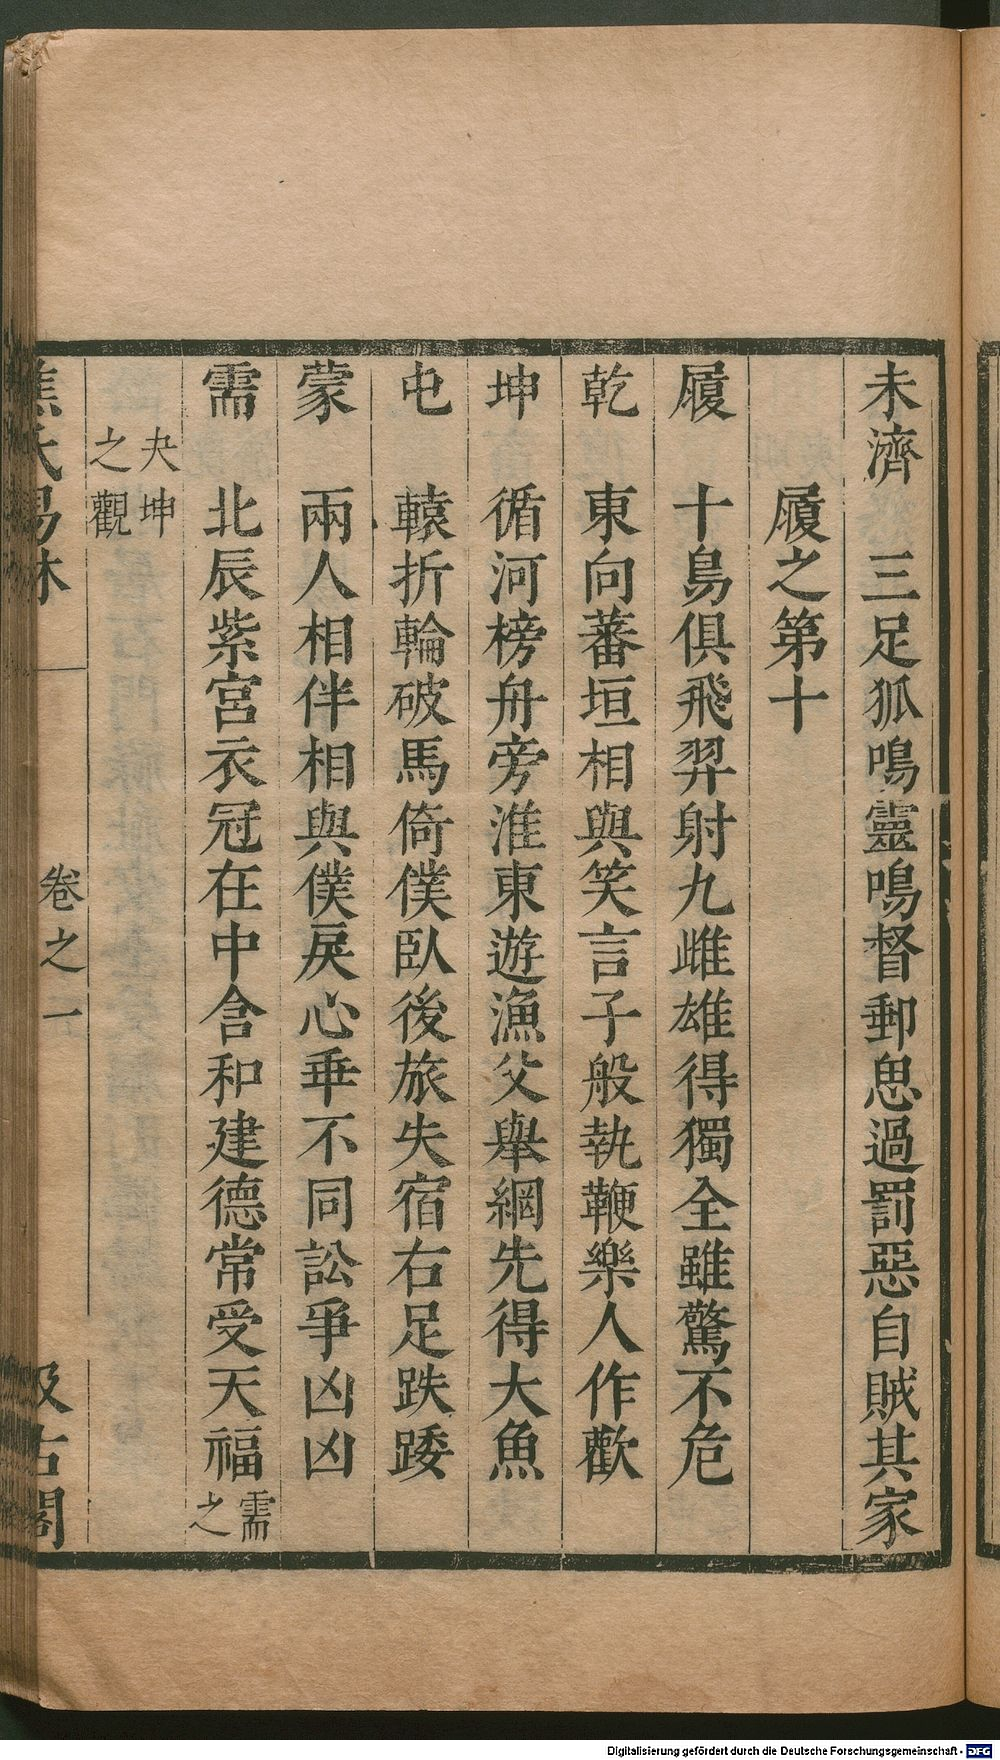 未濟　三足狐鳴靈鳴督郵思過罰惡自賊其家
履之第十
履　十烏俱飛羿射九雌雄得獨全雖驚不危
乾　東向蕃垣相與笑言子般執鞭樂人作歡
坤　循河榜舟旁淮東遊漁父舉網先得大魚
屯　轅折輪破馬倚僕臥後旅失宿右足跌踒
蒙　兩人相伴相與僕戾心乖不同訟爭凶凶
需　北辰紫宮衣冠在中含和建德常受天福需之
夬坤
之觀
焦氏易林　卷之一　汲古閣
Digitalisierung gefördert durch die Deutsche Forschungsgemeinschaft - DFG